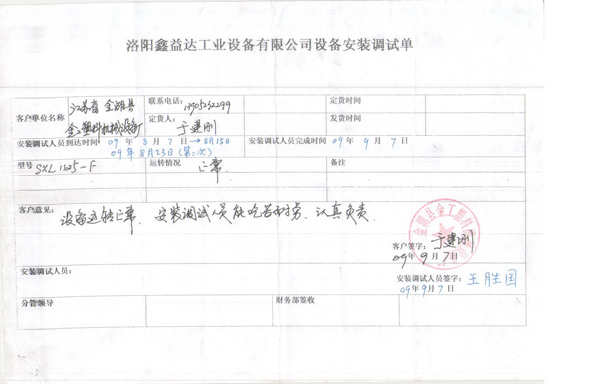 洛阳鑫益达工业设备有限公司设备安装调试单
客户单位名称 江苏省 金湖县
金工塑料机械设备厂
联系电话:
定货时间
定货人: 于建刚
发货时间
安装调试人员到达时间 09年8月7日→8月15日
09年8月23日(第二次)
安装调试人员完成时间 09年9月7日
型号 SXL1225-F
运转情况 正常.
备注
客户意见:
设备运转正常. 安装调试人员能吃苦耐劳. 认真负责.
客户签字: 于建刚
09年9月7日
安装调试人员:
安装调试人员签字: 王胜国
09年9月7日
分管领导
财务部签收